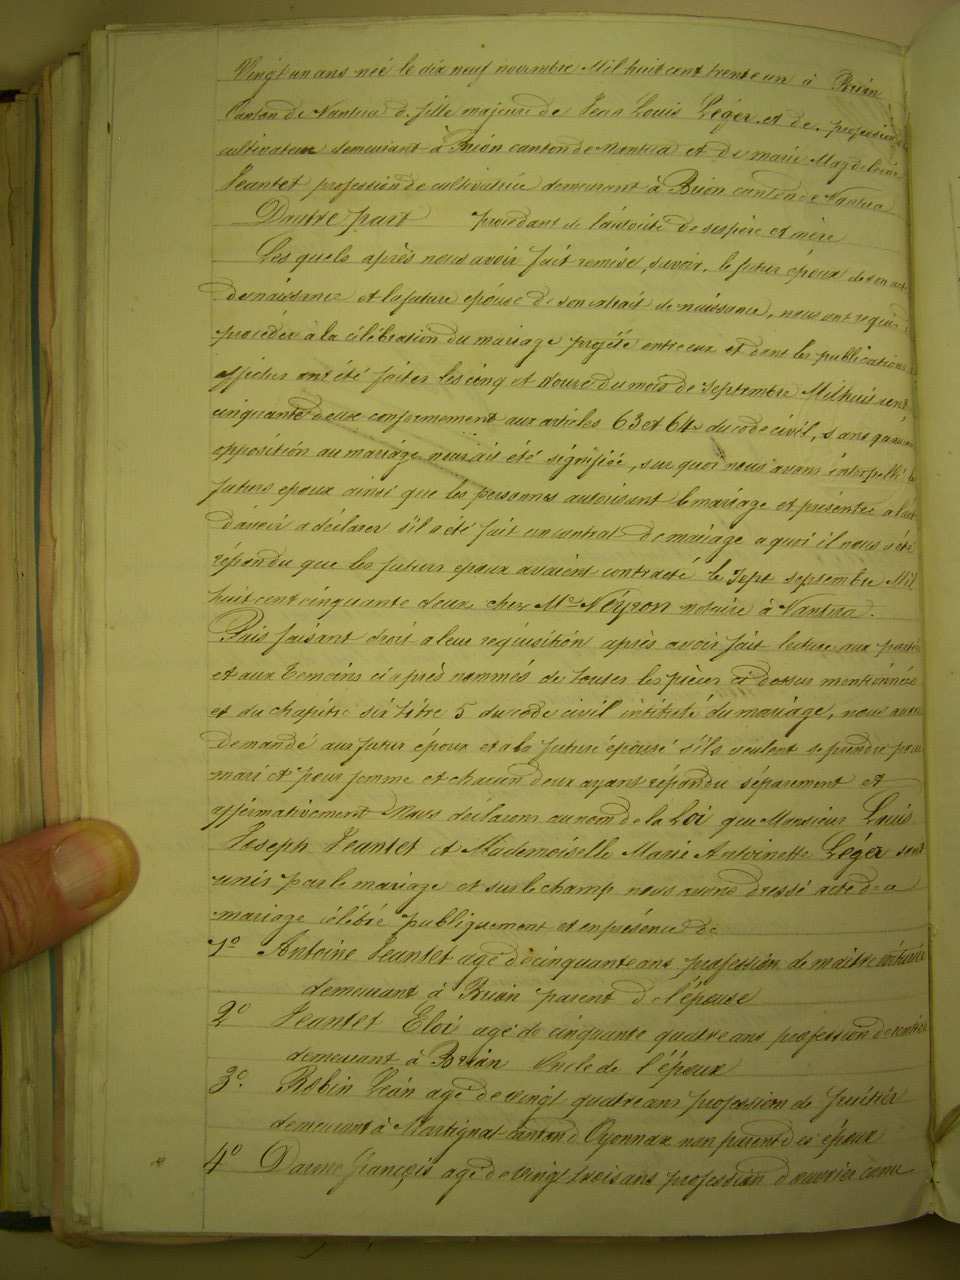 Vingt un ans née le dix neuf novembre Mil huit cent trente un à Brion
Canton de Nantua d. fille majeure de Jean Louis Léger et de profession
cultivateur demeurant à Brion canton de Nantua et de marie Magdeleine
Jeantet profession de cultivatrice demeurant à Brion canton de Nantua
Dautre part procédant de l'autorité de ses père et mère
Les quels après nous avoir fait remise, savoir, le futur époux de son acte
de naissance et la future épouse de son extrait de naissance, nous ont requis de
procéder à la célébration du mariage projété entre eux et dont les publications et
affiches ont été faites les cinq et douze du mois de septembre Mil huit cent
cinquante deux conformement aux articles 63 et 64 du code civil, sans qu'aucune
opposition au mariage nous ait été signifiée, sur quoi nous avons interpellé les
futurs epoux ainsi que les personnes autorisant le mariage et présentes a l'acte
d'avoir a déclarer s'il a été fait un contrat de mariage a quoi il nous a été
répondu que les futurs epoux avaient contracté le sept septembre Mil
huit cent cinquante deux chez Me Néyron notaire à Nantua.
Puis faisant droit a leur requisition après avoir fait lecture aux parties
et aux temoins ci après nommés de toutes les pièces ci dessus mentionnées
et du chapitre six titre 5 du code civil intitulé du mariage, nous avons
demandé au futur époux et a la future épouse s'ils veulent se prendre pour
mari et pour femme et chacun deux ayant répondu séparement et
affirmativement Nous déclarons au nom de la Loi que Monsieur Louis
Joseph Jeantet et Mademoiselle Marie Antoinette Léger sont
unis par le mariage et sur le champ nous avons dressé acte de ce
mariage célébré publiquement et en présence de
1o Antoine Jeantet agé de cinquante ans profession de maitre voiturier
demeurant à Brion parent de l'épouse
2o Jeantet Eloi agé de cinquante quatre ans profession de
demeurant à Brion Oncle de l'époux
3o. Robin Jean agé de vingt quatre ans profession de
demeurant à Martignat canton d Oyonnax non parent des époux
4o Darme françois agé de vingt trois ans profession d'ouvrier